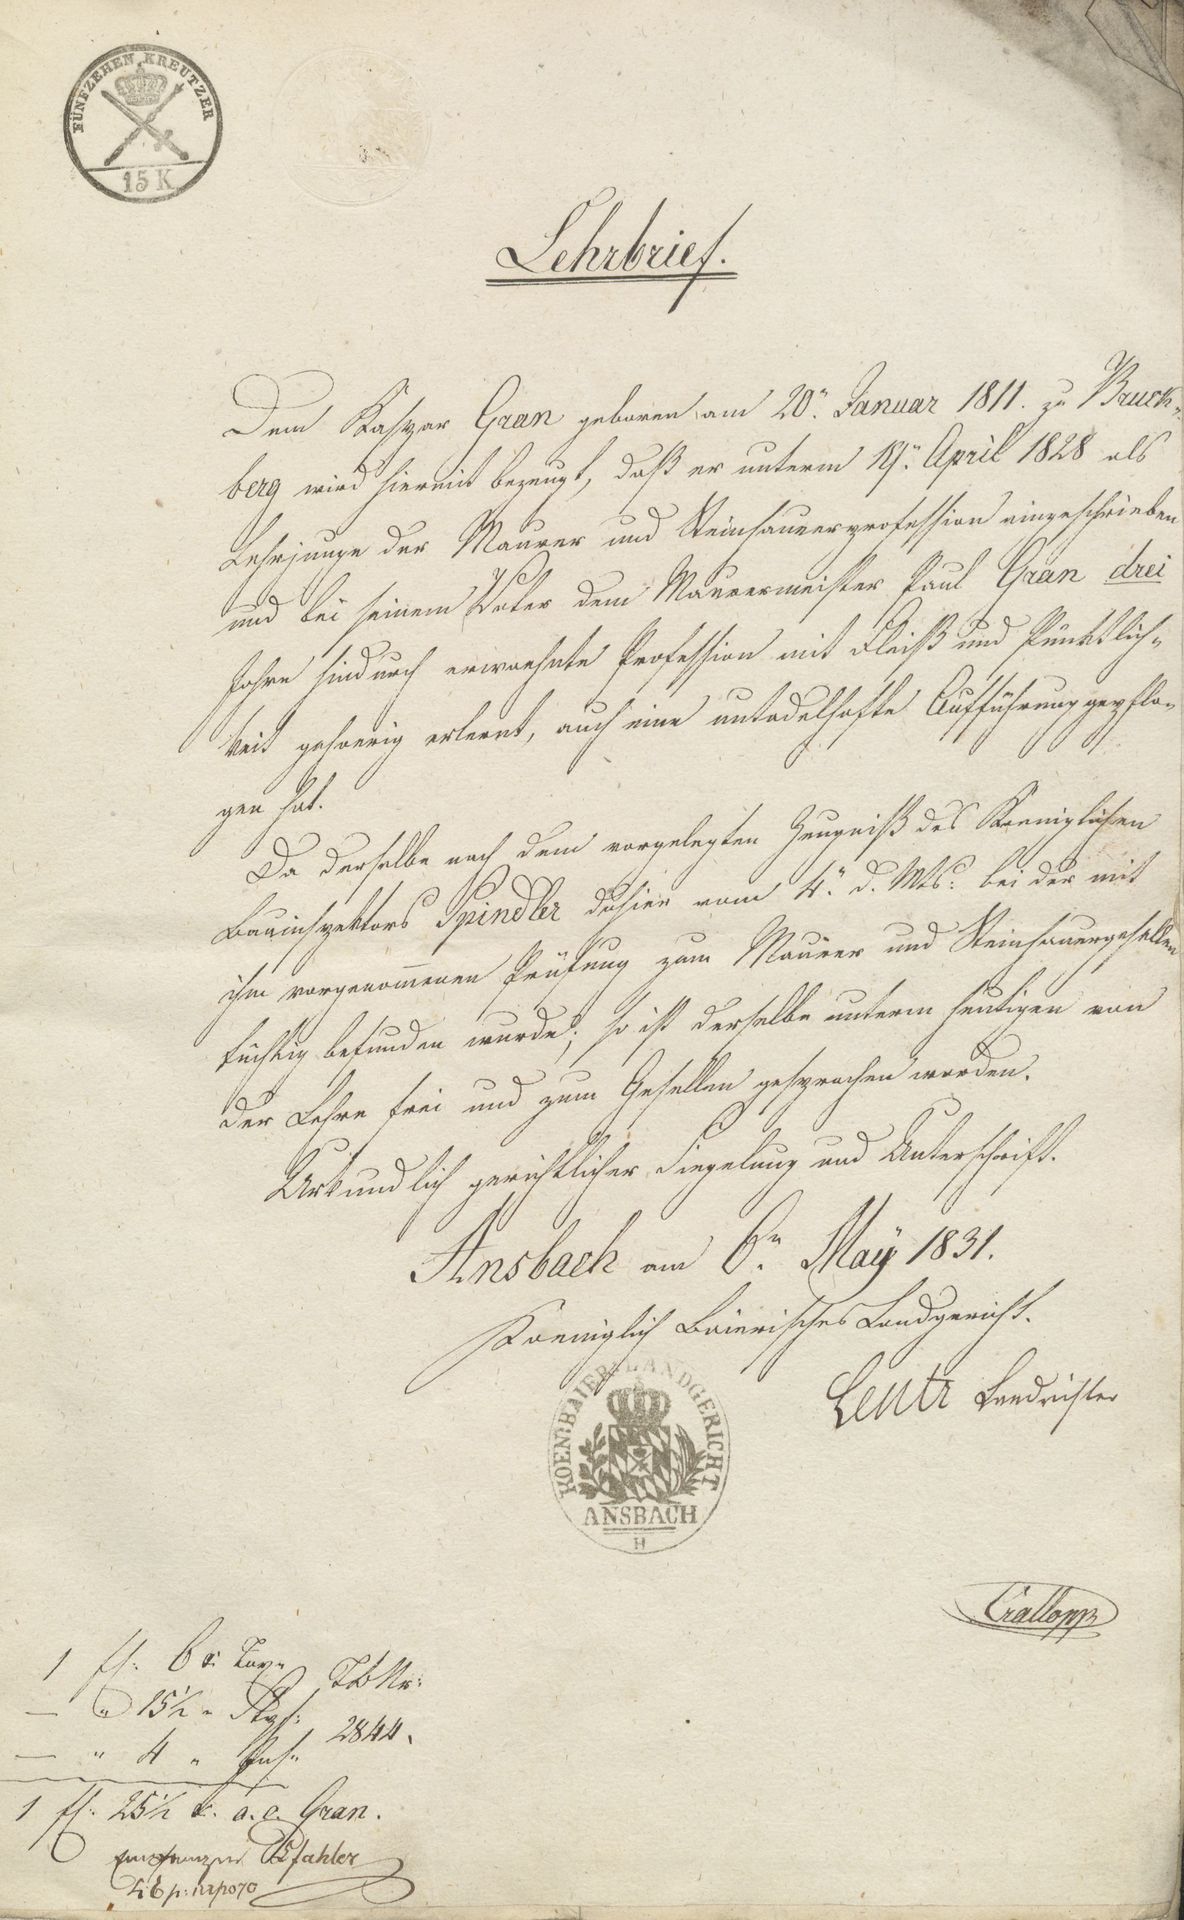 FÜNFZEHEN KREUTZER
15 K
Lehrbrief.
Dem Kaspar Gran geboren am 20n. Januar 1811. zu Bruck-
berg wird hiermit bezeugt, daß er unterm 19n. April 1828 als
Lehrjunge der Maurer und Steinhauerprofession eingeschrieben
und bei seinem Vater dem Maurermeister Paul Gran drei
Jahre hindurch erwaehnte Profession mit Fleiß und Pünktlich-
keit gehoerig erlernt, auch eine untadelhafte Aufführung gepflo-
gen hat.
Da derselbe nach dem vorgelegten Zeugniß des Koeniglichen
Bauinspektors Spindler dahier vom 4n. d. Mts: bei der mit
ihm vorgenom̅enen Prüfung zum Maurer und Steinhauergesellen
tüchtig befunden wurde; so ist derselbe unterm heutigen von
der Lehre frei und zum Gesellen gesprochen worden.
Urkundlich gerichtlicher Siegelung und Unterschrift.
Ansbach am 6n. Maÿ 1831.
Koeniglich Baierisches Landgericht.
KOEN: BAIER: LANDGERICHT
ANSBACH
H
Landrichter
1 fl: 6 x: Tax
— " 15½ "
— " 4 "
TbNr:
2844.
1 fl: 25½ x. a. c. Gran.
Pfahler